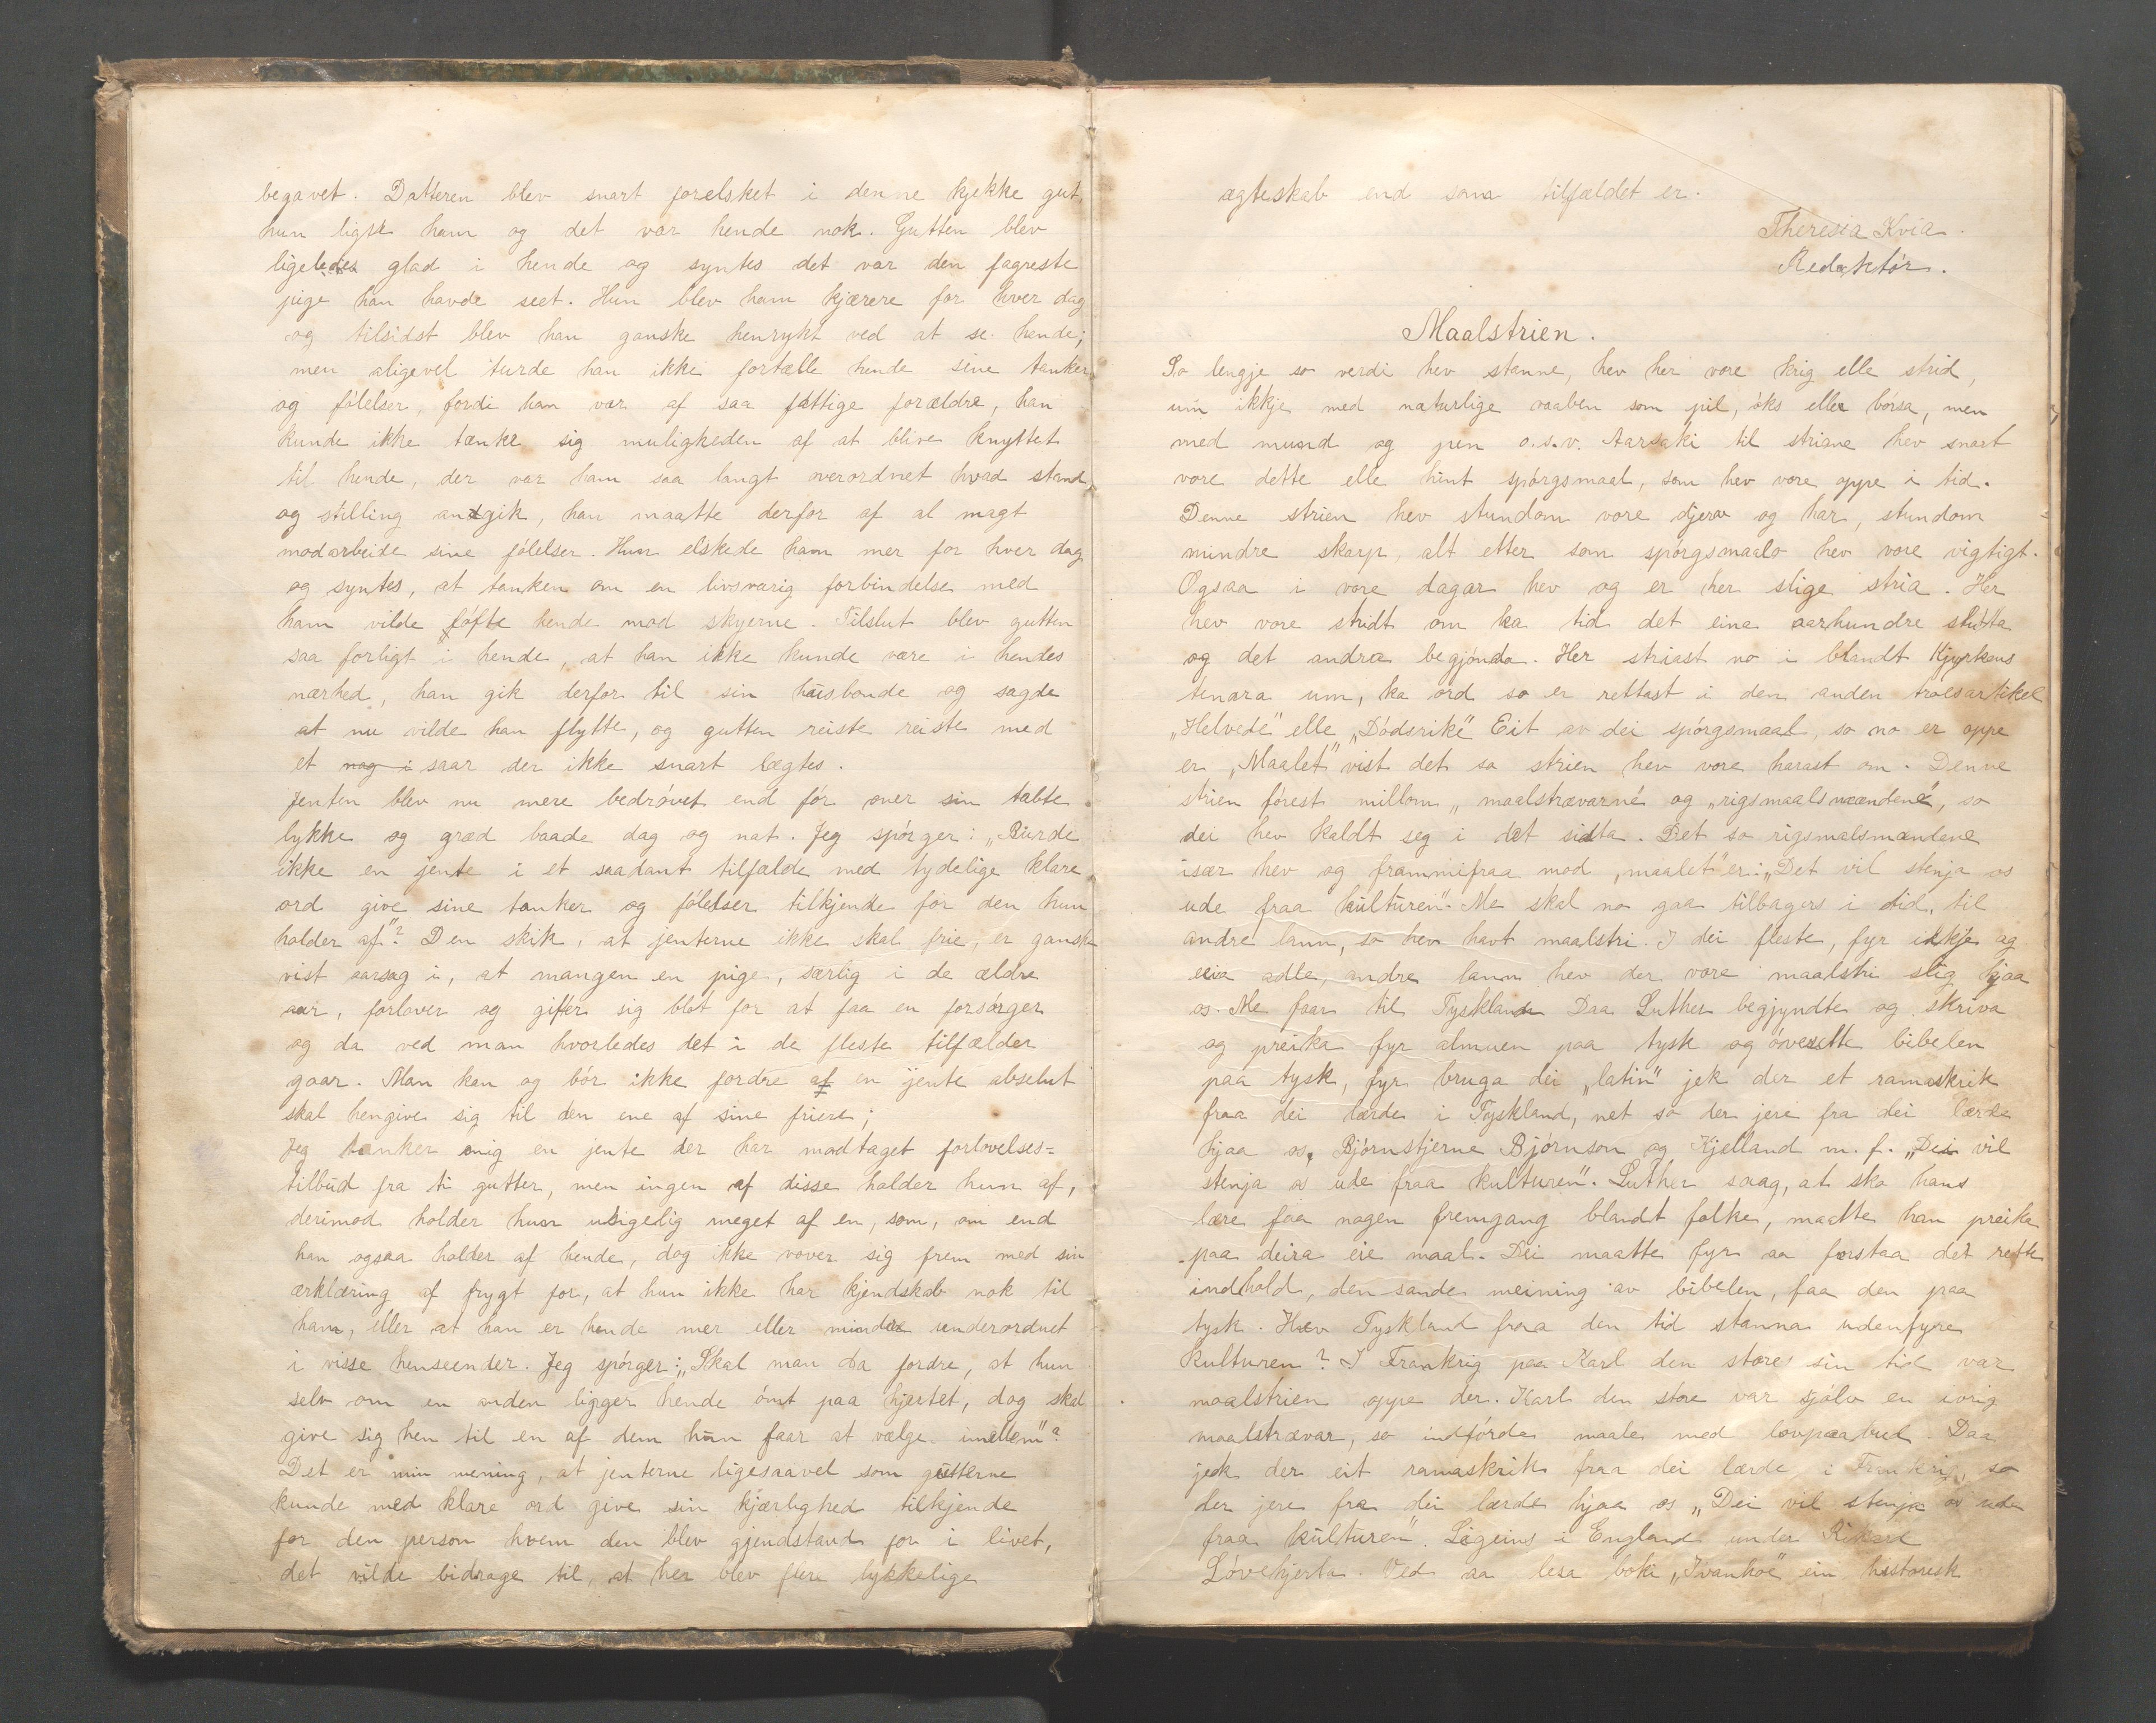 begavet. Datteren blev snart forelsket i denne kjekke gut,
hun ligte ham og det var hende nok. Gutten blev
ligeledes glad i hende og syntes det var den fagreste
pige han havde seet. Hun blev ham kjærere for hver dag
og tilsidst blev han ganske henrykt ved at se hende;
men aligevel turde han ikke fortælle hende sine tanker
og fólelser, fordi han var af saa fattige forældre, han
kunde ikke tænke sig muligheden af at blive knyttet
til hende, der var ham saa langt overordnet hvad stand
og stilling angik, han maatte derfor af al magt
modarbeide sine fólelser. Hun elskede ham mer for hver dag
og syntes, at tanken om en livsvarig forbindelse med
ham vilde lófte hende mod skyerne. Tilslut blev gutten
saa forligt i hende, at han ikke kunde være i hendes
nærhed, han gik derfor til sin husbonde og sagde
at nu vilde han flytte, og gutten reiste reiste med
et nag i saar der ikke snart lægtes.
Jenten blev nu mere bedróvet end fór over sin tabte
lykke og græd baade dag og nat. Jeg spórger: „Burde
ikke en jente i et saadant tilfælde med tydelige klare
ord give sine tanker og fólelser tilkjende for den hun
holder af"? Den skik, at jenterne ikke skal frie, er ganske
vist aarsag i, at mangen en pige, særlig i de ældre
aar, forlover og gifter sig blot for at faa en forsórger
og da ved man hvorledes det i de fleste tilfælder
gaar. Man kan og bór ikke fordre af en jente absolut
skal hengive sig til den ene af sine friere;
Jeg tænker mig en jente der har modtaget forlovelses=
tilbud fra ti gutter, men ingen af disse holder hun af,
derimod holder hun uligelig meget af en, som, om end
han ogsaa holder af hende, dog ikke vover sig frem med sin
erklæring af frygt for, at hun ikke har kjendskab nok til
ham, eller at han er hende mer eller mindre underordnet
i visse henseender. Jeg spórger: „Skal man da fordre, at hun
selv om en anden ligger hende ómt paa hjertet, dog skal
give sig hen til en af dem hun faar at vælge imellem"?
Det er min mening, at jenterne ligesaavel som gutterne
kunde med klare ord give sin kjærlighed tilkjende
for den person hvem den blev gjendstand for i livet,
det vilde bidrage til, at her blev flere lykkelige
ægteskab end som tilfældet er.
Theresia Kvia.
Redaktór.
Maalstrien.
So lengje so verdi hev stanne, hev her vore krig elle strid,
um ikkje med naturlige vaaben som pil, óks eller bórsa, men
med mund og pen o.s.v. Aarsaki til striane hev snart
vore dette elle hint spórgsmaal, som hev vore oppe i tid.
Denne strien hev stundom vore djerv og har, stundom
mindre skarp, alt etter som spórgsmaalo hev vore vigtigt.
Ogsaa i vore dagar hev og er her slige stria. Her
hev vore stridt om ka tid det eine aarhundre slutta
og det andra begjónda. Her striast no i blandt Kjyrkens
tenara um, ka ord so er rettast i den anden troesartikel
„Helvede" elle „Dódsrike" Eit av dei spórgsmaal, so no er oppe
er „Maalet" vist det so strien hev vore harast om. Denne
strien fórest millom „maalstrævarne" og „rigsmaalsmændene", so
dei hev kaldt seg i det sidta. Det so rigsmalsmændene
især hev og frammifraa mod „maalet" er: „Det vil stenja os
ude fraa kulturen". Me skal no gaa tilbagers i tid, til
andre lann, so hev havt maalstri. I dei fleste, fyr ikkje og
seia adle, andre lann hev der vore maalstri slig hjaa
os. Me faar til Tyskland Daa Luther begjyndte og skriva
og preika fyr almuen paa tysk og óversette bibelen
paa tysk, fyr bruga dei „latin" jek der et ramaskrik
fraa dei lærde i Tyskland, net so der jere fra dei lærde
hjaa os, Bjórnstjerne Bjórnson og Kjelland m. f. „Dei vil
stenja os ude fraa kulturen". Luther saag, at sko hans
lære faa nogen fremgang blandt folke, maatte han preika
paa deira eie maal. Dei maatte fyr aa forstaa det rette
indhold, den sande meining av bibelen, faa den paa
tysk. Hev Tyskland fraa den tid stanna udenfyre
kulturen? I Frankrig paa Karl den store sin tid var
maalstrien oppe der. Karl den store var sjólv en ivrig
maalstrævar, so indfórde maale med lovpaabud. Daa
jek der eit ramaskrik fraa dei lærde i Frankrig, so
der jere fra dei lærde hjaa os „Dei vil stenja os ude
fraa kulturen". Ligeins i England under Rikard
Lóvehjerta. Ved aa lesa boka „Ivanhoe" ein historisk